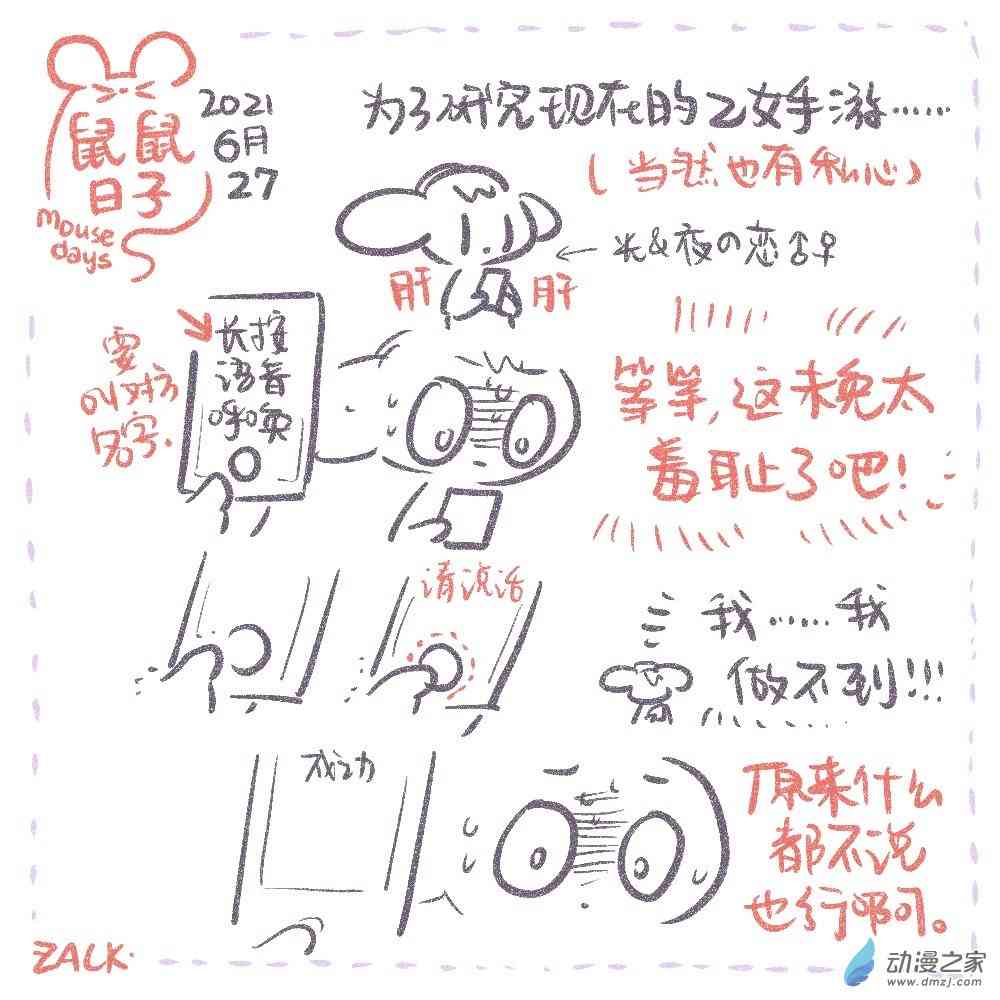 鼠鼠
日子
mouse
days
2021
6月
27
为了研究现在的乙女手游……
(当然也有私心)
←光&夜の恋
肝 肝
要
叫对方
名字.
长按
语音
呼唤
等等,这未免太
羞耻了吧!
请说话
我……我
做不到!!!
成功
原来什么
都不说
也行啊。
ZALK.
动漫之家
www.dmzj.com